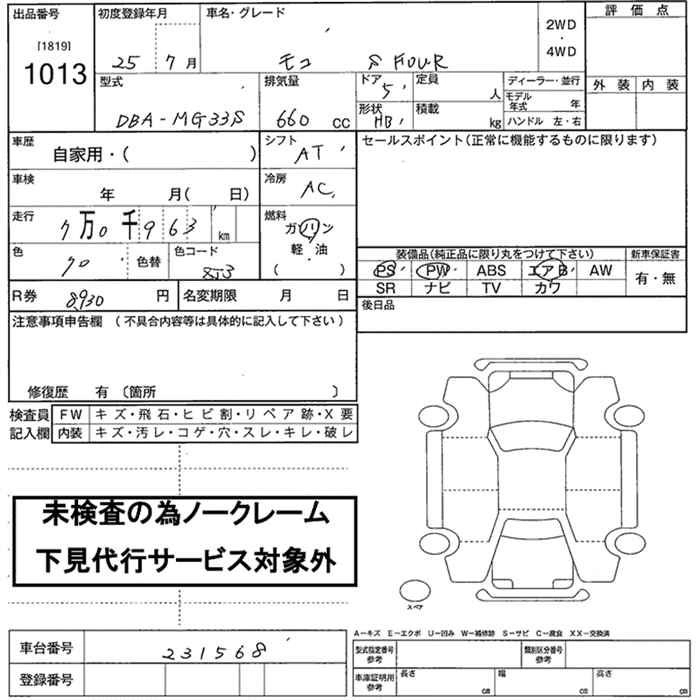 出品番号 初度登録年月 車名・グレード 評価点
[1819]
1013
25 7月 モコ S FOUR
2WD
・
4WD
外装 内装
型式 排気量 ドア 定員 ディーラー・並行
5 人 モデル年式 年
DBA-MG33S 660 cc 形状 HB 積載 kg ハンドル 左・右
車歴 シフト セールスポイント(正常に機能するものに限ります)
自家用・( ) AT
車検 冷房
年 月( 日) AC
走行 燃料
7万0千963 km ガソリン
軽・油
( )
色 色替 色コード
クロ
装備品(純正品に限り丸をつけて下さい) 新車保証書
PS PW ABS エアB AW 有・無
SR ナビ TV カワ
R券 8930 円 名変期限 月 日
後日品
注意事項申告欄 (不具合内容等は具体的に記入して下さい)
修復歴 有 〔箇所 〕
検査員 FW キズ・飛石・ヒビ割・リペア跡・X要
記入欄 内装 キズ・汚レ・コゲ・穴・スレ・キレ・破レ
未検査の為ノークレーム
下見代行サービス対象外
スペア
A-キズ E-エクボ U-凹み W-補修跡 S-サビ C-腐食 XX-交換済
車台番号 231568
型式指定番号 参考 類別区分番号 参考
登録番号
車庫証明用 参考 長さ cm 幅 cm 高さ cm